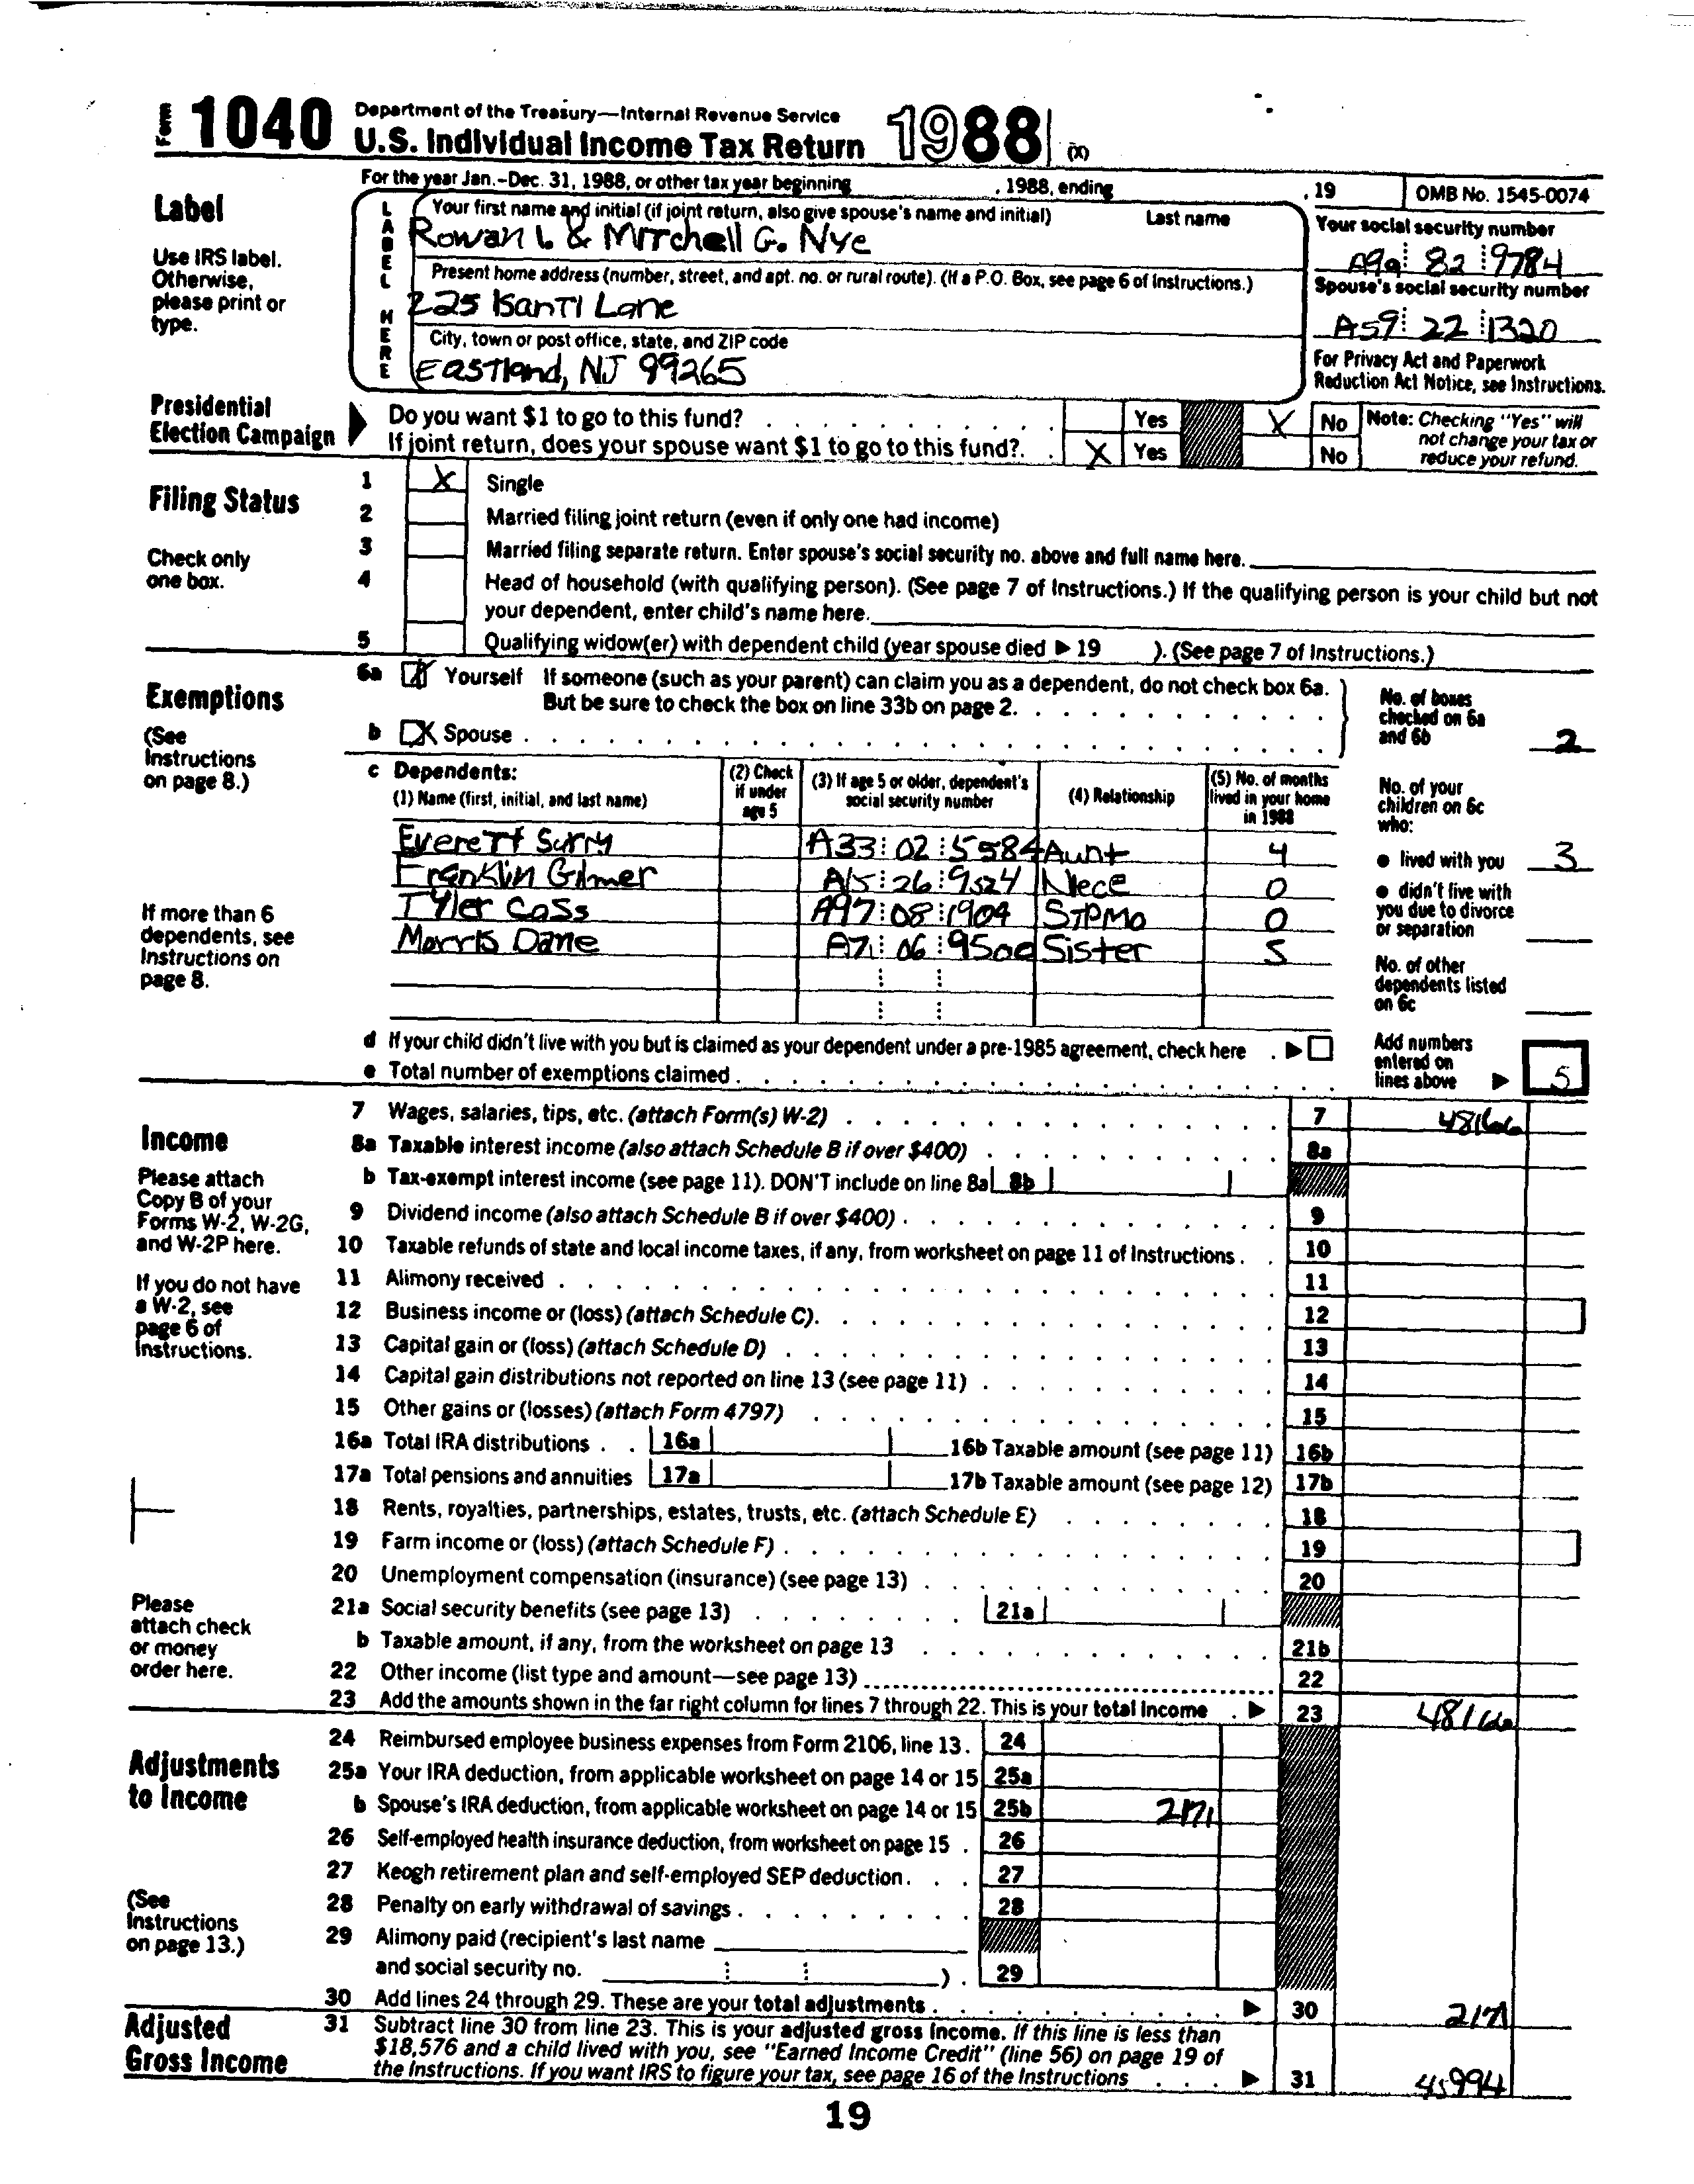 Form 1040 Department of the Treasury—Internal Revenue Service
U.S. Individual Income Tax Return 1988 (X)
For the year Jan.-Dec. 31, 1988, or other tax year beginning , 1988, ending , 19 OMB No. 1545-0074
Label
Use IRS label. Otherwise, please print or type.
LABEL HERE
Your first name and initial (if joint return, also give spouse's name and initial) Last name
Rowan L & Mitchell G. Nye
Your social security number
82 9784
Present home address (number, street, and apt. no. or rural route). (If a P.O. Box, see page 6 of Instructions.)
225 Isanti Lane
Spouse's social security number
A59 22 1320
City, town or post office, state, and ZIP code
Eastland, NJ 99265
For Privacy Act and Paperwork Reduction Act Notice, see Instructions.
Presidential Election Campaign
Do you want $1 to go to this fund? Yes X No
If joint return, does your spouse want $1 to go to this fund?. X Yes No
Note: Checking "Yes" will not change your tax or reduce your refund.
Filing Status
Check only one box.
1 X Single
2 Married filing joint return (even if only one had income)
3 Married filing separate return. Enter spouse's social security no. above and full name here.
4 Head of household (with qualifying person). (See page 7 of Instructions.) If the qualifying person is your child but not
your dependent, enter child's name here.
5 Qualifying widow(er) with dependent child (year spouse died ▶ 19 ). (See page 7 of Instructions.)
Exemptions
(See Instructions on page 8.)
6a X Yourself If someone (such as your parent) can claim you as a dependent, do not check box 6a.
But be sure to check the box on line 33b on page 2.
b X Spouse
No. of boxes checked on 6a and 6b 2
c Dependents:
(1) Name (first, initial, and last name) (2) Check if under age 5 (3) If age 5 or older, dependent's social security number (4) Relationship (5) No. of months lived in your home in 1988
Everett Surry A33 02 5584 Aunt 4
Franklin Gilmer A15 26 9524 Niece 0
Tyler Cass A97 08 1904 STPMO 0
Morris Dane A71 06 9500 Sister 5
If more than 6 dependents, see Instructions on page 8.
No. of your children on 6c who:
● lived with you 3
● didn't live with you due to divorce or separation
No. of other dependents listed on 6c
d If your child didn't live with you but is claimed as your dependent under a pre-1985 agreement, check here . ▶
e Total number of exemptions claimed
Add numbers entered on lines above ▶ 5
Income
Please attach Copy B of your Forms W-2, W-2G, and W-2P here.
If you do not have a W-2, see page 6 of Instructions.
Please attach check or money order here.
7 Wages, salaries, tips, etc. (attach Form(s) W-2) 7 48166
8a Taxable interest income (also attach Schedule B if over $400) 8a
b Tax-exempt interest income (see page 11). DON'T include on line 8a 8b
9 Dividend income (also attach Schedule B if over $400) 9
10 Taxable refunds of state and local income taxes, if any, from worksheet on page 11 of Instructions 10
11 Alimony received 11
12 Business income or (loss) (attach Schedule C) 12
13 Capital gain or (loss) (attach Schedule D) 13
14 Capital gain distributions not reported on line 13 (see page 11) 14
15 Other gains or (losses) (attach Form 4797) 15
16a Total IRA distributions 16a 16b Taxable amount (see page 11) 16b
17a Total pensions and annuities 17a 17b Taxable amount (see page 12) 17b
18 Rents, royalties, partnerships, estates, trusts, etc. (attach Schedule E) 18
19 Farm income or (loss) (attach Schedule F) 19
20 Unemployment compensation (insurance) (see page 13) 20
21a Social security benefits (see page 13) 21a
b Taxable amount, if any, from the worksheet on page 13 21b
22 Other income (list type and amount—see page 13) 22
23 Add the amounts shown in the far right column for lines 7 through 22. This is your total income ▶ 23 48166
Adjustments to Income
(See Instructions on page 13.)
24 Reimbursed employee business expenses from Form 2106, line 13 24
25a Your IRA deduction, from applicable worksheet on page 14 or 15 25a
b Spouse's IRA deduction, from applicable worksheet on page 14 or 15 25b 2171
26 Self-employed health insurance deduction, from worksheet on page 15 26
27 Keogh retirement plan and self-employed SEP deduction 27
28 Penalty on early withdrawal of savings 28
29 Alimony paid (recipient's last name
and social security no. ) 29
30 Add lines 24 through 29. These are your total adjustments ▶ 30 2171
Adjusted Gross Income
31 Subtract line 30 from line 23. This is your adjusted gross income. If this line is less than
$18,576 and a child lived with you, see "Earned Income Credit" (line 56) on page 19 of
the Instructions. If you want IRS to figure your tax, see page 16 of the Instructions ▶ 31 45994
19